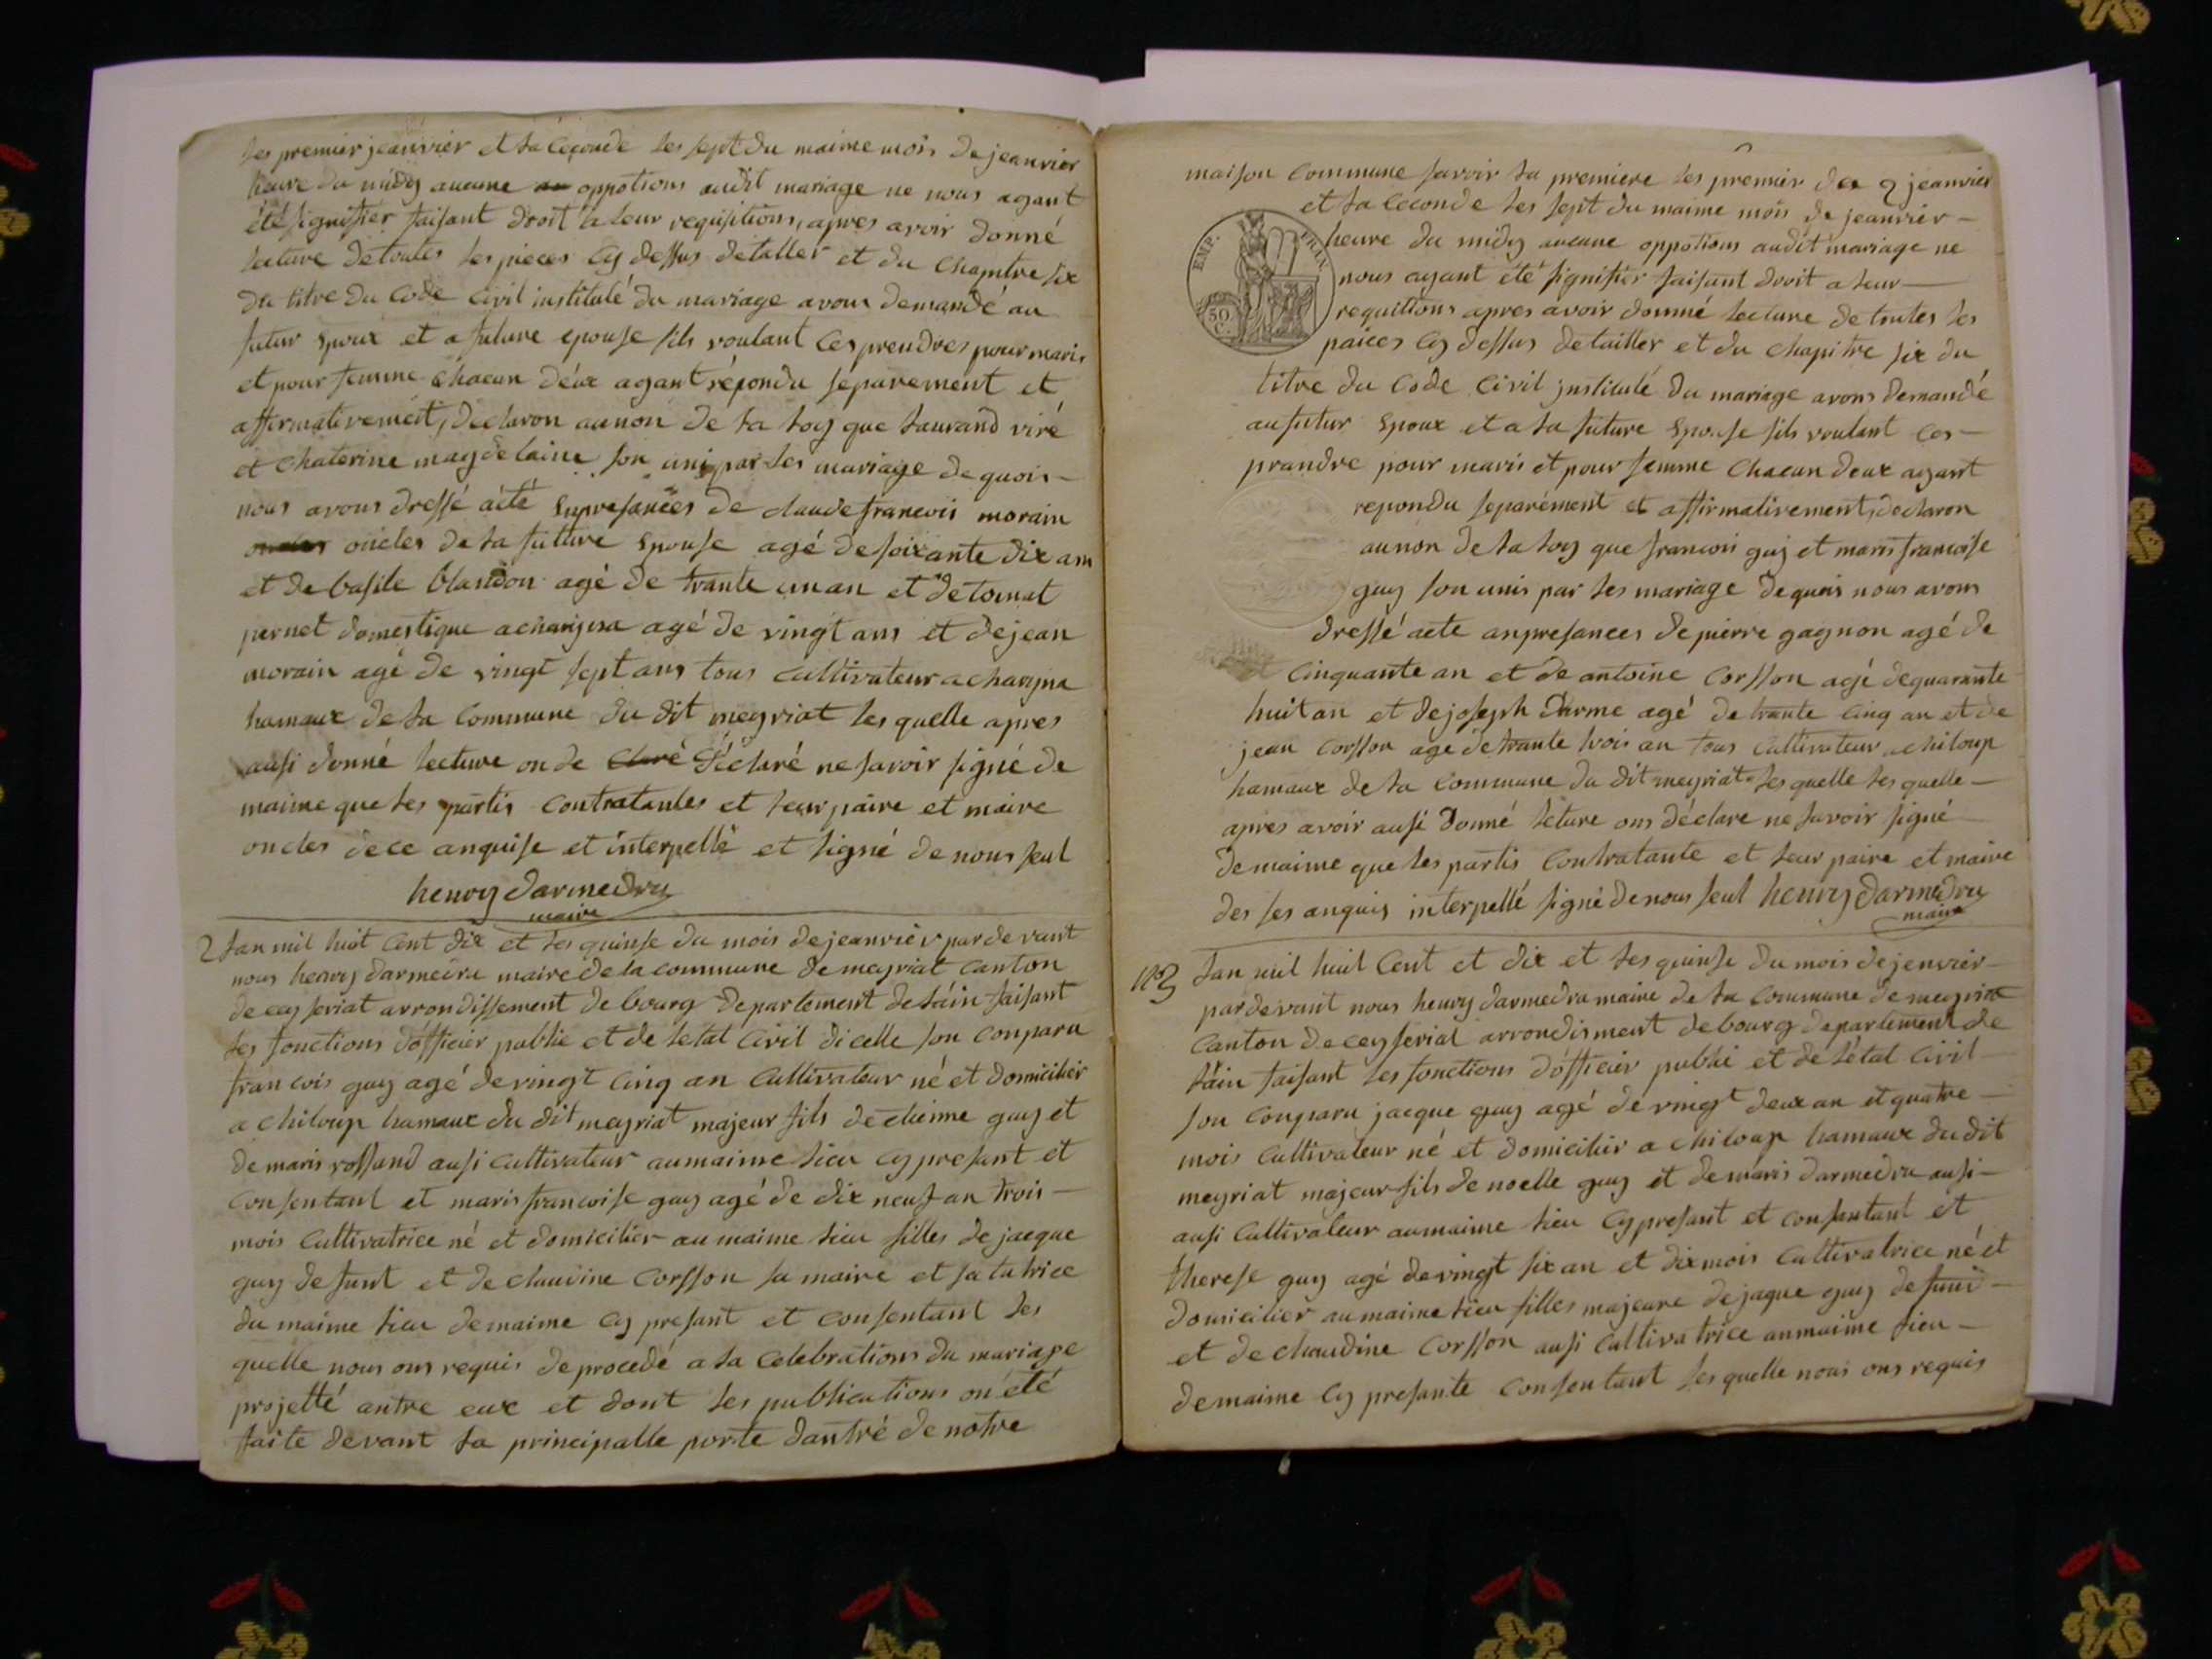 les premier jeanvier et la ceçonde les sept du maime mois de jeanvier
heure du midy aucune oppotions audit mariage ne nous ayant
été signifier faisant droit a leur requisitions, apres avoir donné
lecture de toutes les pieces cy dessus detaller et du chapitre six
du titre du code civil institulé du mariage avons demandé au
futur epoux et a future epouse sils voulant ces prendres pour maris
et pour femme chacun déux ayant répondu séparement et
affirmativement, declaron au non de la loy que laurand viré
et chaterine magdelaine son unis par les mariage de quois
nous avons dressé acté enpresances de claude francois morain
oncles de la future epouse agé de soixante dix ans
et de basile blandon agé de trante un an et de tomat
pernet domestique a charijna agé de vingt ans et de jean
morain agé de vingt sept ans tous cultivateur a charijna
hamaux de la commune du dit meyriat les quelle apres
ausi donné lecture on de claré déclaré ne savoir signé de
maime que les partis contratantes et leur paire et maire
oncles de ce anquise et interpellé et signé de nous seul
henry darmedru
maire
2 lan mil huit cent dix et les quinse du mois de jeanvier par de vant
nous henry darmedru maire de la commune de meyriat canton
de ceyseriat arrondissement de bourg departement de láin faisant
les fonctions dófficier public et de letat civil dicelle son conparu
francois guy agé de vingt cinq an cultivateur né et domicilier
a chiloup hamaux du dit meyriat majeur fils de etienne guy et
de maris rossand ausi cultivateur aumaime lieu cy presant et
consentant et maris francoise guy agé de dix neuf an trois
mois cultivatrice né et domicilier au maime lieu filles de jacque
guy defunt et de claudine corsson sa maire et sa tutrice
du maime lieu de maime cy presant et consentant les
quelle nous ons requis de procedé a la celebrations du mariage
projetté antre eux et dont les publications on été
faite devant la principalle porte dantré de notre
maison commune savoir la premiere les premier jeanvier
et la ceconde les sept du maime mois de jeanvier
heure du midy aucune oppotions audit mariage ne
nous ayant été signifier faisant droit a leur
requitions apres avoir donné lecture de toutes les
paices cy dessus detailler et du chapitre six du
titre du code civil institulé du mariage avons demandé
au futur epoux et a la future epouse sils voulant ces
prandre pour maris et pour femme chacun deux ayant
repondu separément et affirmativement, declaron
au non de la loy que francois guy et maris francoise
guy son unis par les mariage de quois nous avons
dressé acte anpresances de pierre gagnon agé de
cinquante an et de antoine corsson agé de quarante
huit an et de joseph darme agé de trante cinq an et de
jean corsson agé de trante trois an tous cultivateur a chiloup
hamaux de la commune du dit meyriat les quelle les quelle
apres avoir ausi donné leture ons déclare ne savoir signé
de maime que les partis contratante et leur paire et maire
des ses anquis interpellé signé de nous seul henry darmedru
maire
EMP. FRAN.
50 C.
n°3 lan mil huit cent et dix et les quinse du mois de jenvier
par devant nous henry darmedru maire de la commune de meyriat
canton de ceyseriat arrondisment de bourg departement de
láin faisant les fonctions dófficier public et de létat civil
son conparu jacque guy agé de vingt deux an et quatre
mois cultivateur né et domicilier a chiloup hamaux du dit
meyriat majeur fils de noelle guy et de maris darmedru ausi
ausi cultivateur aumaime lieu cy presant et consantant et
therese guy agé de vingt six an et dix mois cultivatrice né et
domicilier au maime lieu filles majeure de jaque guy defunt
et de claudine corsson ausi cultivatrice aumaime lieu
de maime cy presante consentant les quelle nous ons requis